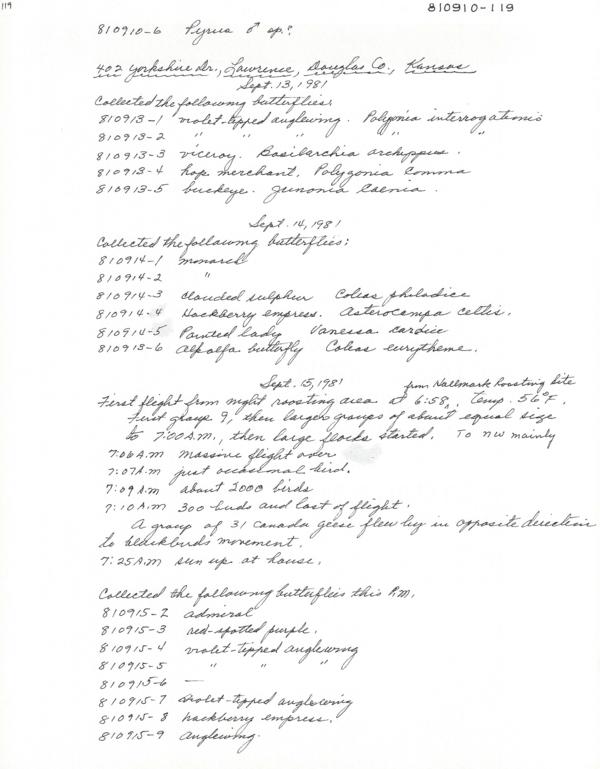 119
810910-119
810910-6 Pyrus ♂ sp.?
402 Yorkshire Dr., Lawrence, Douglas Co., Kansas
Sept. 13, 1981
Collected the following butterflies:
810913-1 violet-tipped anglewing. Polygonia interrogationis
810913-2 " " " " "
810913-3 viceroy. Basilarchia archippus.
810913-4 hop merchant. Polygonia comma
810913-5 buckeye. Junonia coenia.
Sept. 14, 1981
Collected the following butterflies:
810914-1 monarch
810914-2 "
810914-3 clouded sulphur Colias philodice
810914-4 Hackberry empress. Asterocampa celtis.
810914-5 Painted lady Vanessa cardui
810913-6 Alfalfa butterfly Colias eurytheme.
Sept. 15, 1981 from Hallmark roosting site
First flight from night roosting area at 6:58, Temp. 56°F.
First group 9, then larger groups of about equal size
to 7:00 A.M., then large flocks started. To NW mainly
7:06 A.M massive flight over
7:07 A.M just occasional bird.
7:09 A.M about 2000 birds
7:10 A.M 300 birds and last of flight.
A group of 31 Canada geese flew by in opposite direction
to blackbirds movement.
7:25 A.M sun up at house.
Collected the following butterflies this P.M.
810915-2 admiral
810915-3 red-spotted purple.
810915-4 violet-tipped anglewing
810915-5 " " "
810915-6 —
810915-7 violet-tipped anglewing
810915-8 hackberry empress.
810915-9 anglewing.